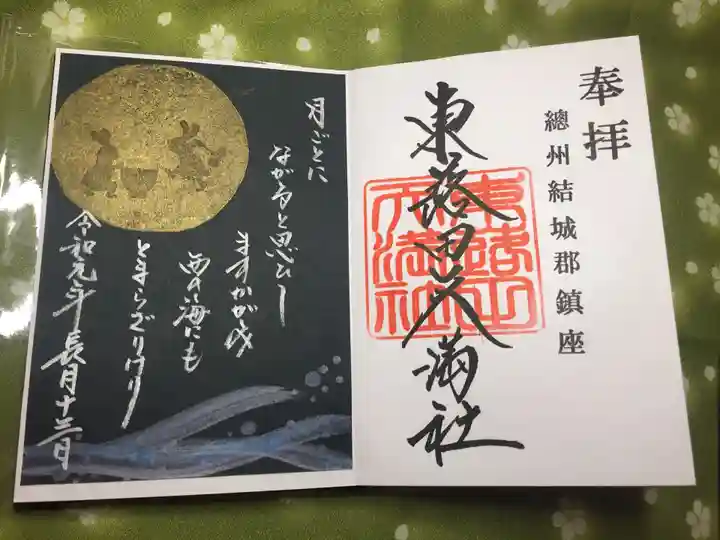 奉拝
總州結城郡鎮座
東蕗田天満社
月ごとに
ながると思ひし
ますかがみ
西の海にも
とまらざりけり
令和元年 長月十三日